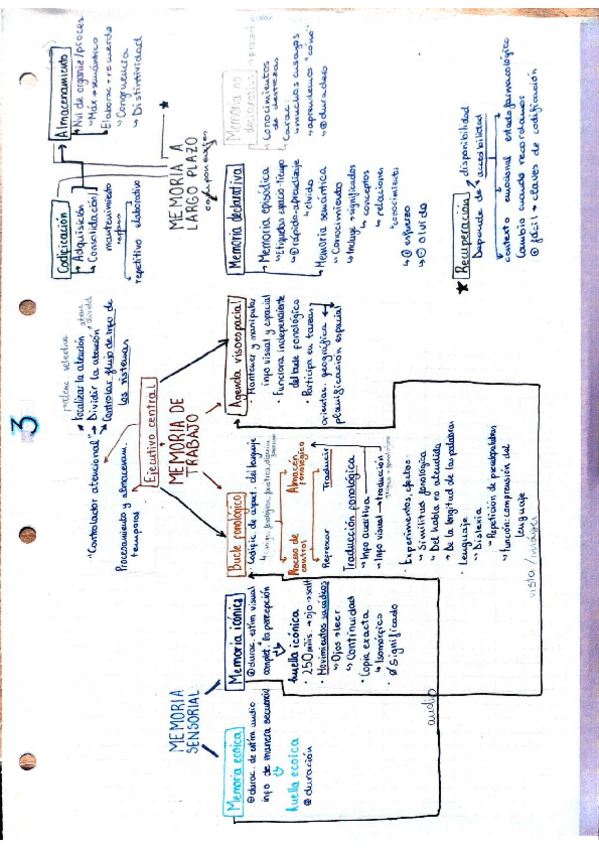 3
MEMORIA
SENSORIAL
Memoria ecoica
⊕ durac. de estím audio
info de manera secuencial
huella ecoica
⊕ duración
Memoria icónica
⊕ durac. estím visual
complet. la percepción
huella icónica
· 250 milis. → ojo → salt
· Movimientos sacádicos
↳ Ojos → leer
↳ Continuidad
· Copia exacta
↳ Isomórfico
· Ø significado
audio
vista / imágen
MEMORIA DE
TRABAJO
Ejecutivo central
"Controlador atencional"
Procesamiento y almacenam.
temporal
Focalizar la atención
Dividir la atención
Controlar flujo de info de
los sistemas
Bucle fonológico
Logístic de
del lenguaje
Proceso de
control
Almacén
fonológico
Repasar
Traducir
Traducción fonológica
↳ Info auditiva
↳ Info visual → traducción
· Experimentos, efectos:
↳ Similitud fonológica
↳ Del habla no atendida
↳ De la longitud de las palabras
· Lenguaje
↳ Dislexia
↳ Repetición de pseudopalabras
↳ función: comprensión del
lenguaje
Agenda visoespacial
· Mantener y manipular
info visual y espacial
· Funciona independiente
del bucle fonológico
· Participa en tareas
orientac. geográfica
planificación espacial
MEMORIA A
LARGO PLAZO
componentes
★
Codificación
↳ Adquisición
↳ Consolidación
mantenimiento
repaso
repetitivo elaborativo
Almacenamiento
↳ Nvl de organiz/proces
↳ Máx → semántico
Elaborac → recuerdo
↳ Congruencia
↳ Distintividad
Memoria declarativa
↳ Memoria episódica
↳ Etiquetas espacio-tiempo
↳ ⊕ rápido → aprendizaje
↳ olvido
↳ Memoria semántica
↳ Conocimiento
↳ Incluye → significados
↳ conceptos
↳ relaciones
conocimiento
↳ ⊕ esfuerzo
↳ ⊖ olvido
Memoria no
declarativa
↳ Conocimientos
de destrezas
↳ Carac:
↳ muchos ensayos
↳ aprendemos "cómo"
↳ ⊕ duradero
★ Recuperación
Depende de
disponibilidad
accesibilidad
contexto emocional estado farmacológico
Cambia cuando recordamos
⊕ fácil → claves de codificación